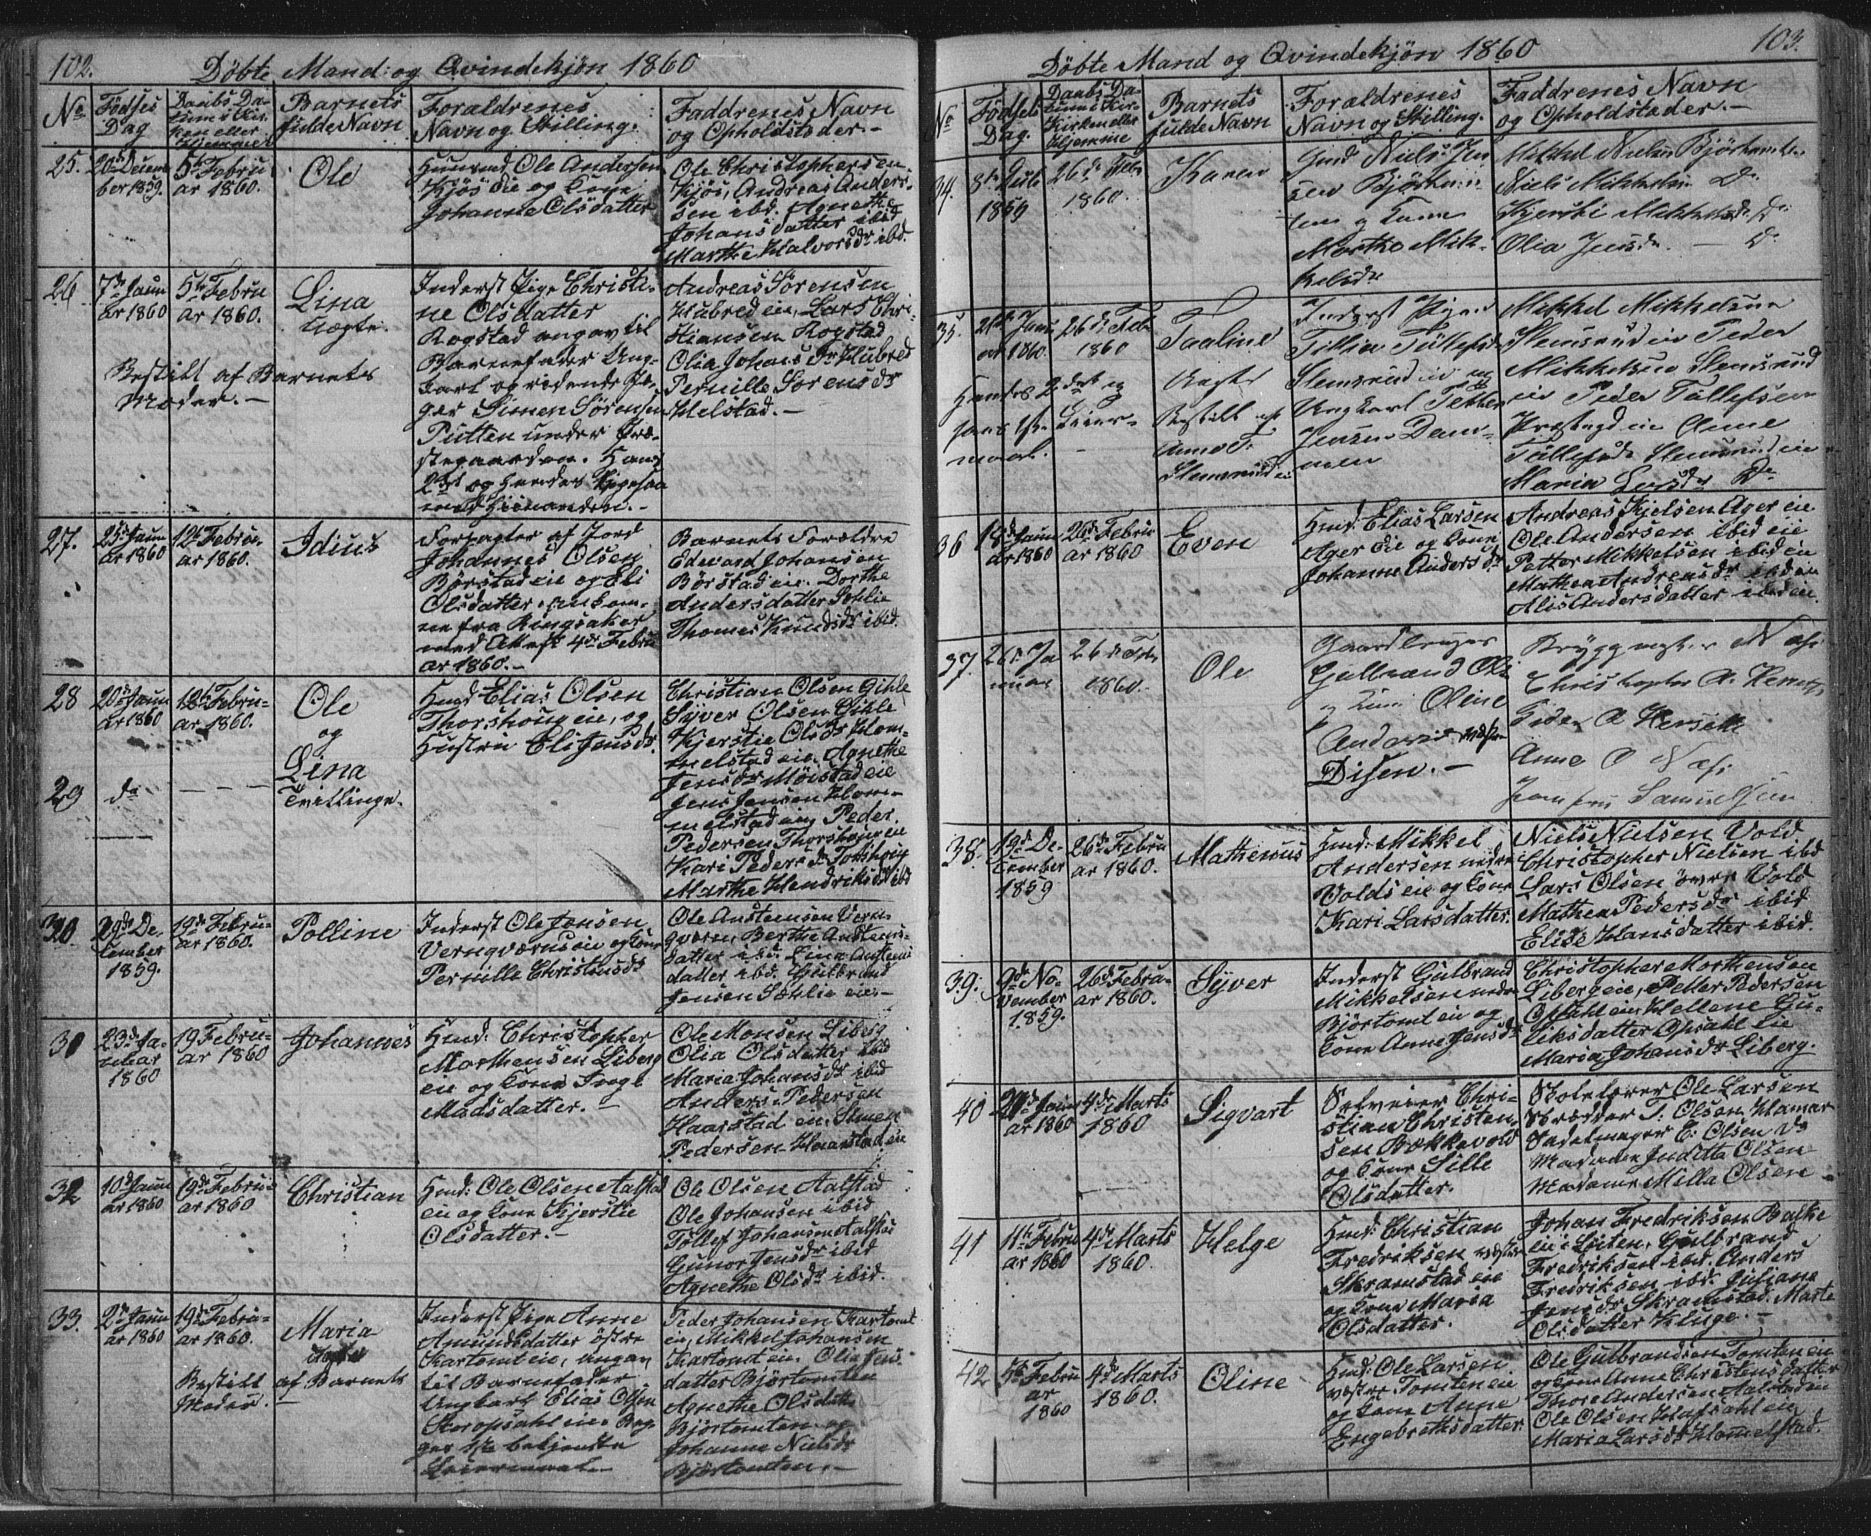 102.
Døbte Mand: og Qvindekjøn 1860
No
Fødsels
Dag
Daabs Da-
tum i Kir-
ken eller
Hjemme
Barnets
fulde Navn
Foraldrenes
Navn og Stilling.
Faddrenes Navn
og Opholdsteder.-
25.
20de Decem
ber 1859.
5te Febru
ar 1860.
Ole
Huusmd Ole Andersen
Kjøs eie og Kone
Johanne Olsdatter
Ole Christophersen
Kjøs, Andreas Anders-
sen ibd. Agnethe
Johansdatter ibid
Marthe Halvorsdr ibd.
26
7de Janu
ar 1860
5te Febru
ar 1860.
Lina
Uægte.
Bestilt af Barnets
Moder.-
Inderst Pige Christi-
ne Olsdatter
Rogstad angav til
Barnefader Ung-
karl
Simen Sørensen
Putten under Præ-
stegaarden. Hans
2det og Hendes
Andreas Sørensen
Hubred eie, Lars Chri-
stiansen Rogstad
Olia Johans Dr Hubred
Pernille Sørensdr
Helstad.-
27.
25de Janu
ar 1860
12te Febru-
ar 1860.
Idius
Forpagter af Jord
Johannes Olsen
Børstad eie og Eli
Olsdatter, ankom-
ne fra Ringsaker
med Attest 4de Febru
ar 1860.-
Barnets Foraldre
Edevard Johansen
Børstad eie. Dorthe
Andersdatter Sohlie
Thomas Knudsdr ibid.
28
20de Janu
ar 1860
12te Febru-
ar 1860.
Ole
og
29
do
Lina
Tvillinge.
Hmd Elias Olsen
Thorshoug eie, og
Hustru Eli Jensdr
Christian Olsen Gihle
Syver Olsen Gihle
Kjerstie Olsdr Hom-
melstad eie. Agnethe
Jensdr Møistad eie
Jens Jensen Hom-
melstad eie Peder
Pedersen Thorshoug eie
Kari Pedersdr Torshoug
Marthe Hendriksdr ibd
30
29de De-
cember
1859.
19de Febru-
ar 1860.
Polline
Inderst Ole Jensen
Verngværnseie og Kone
Pernille Christensdr
Ole Anstensen Vern-
gværn, Berthe Anstens-
datter ibd. Lina Anstens
datter ibd. Gulbrand
Jensen Sohlie eie.-
31
23de Ja-
nuar
1860
19 Febru-
ar 1860
Johannes
Hmd: Christopher
Morthensen Liberg
eie og Kone Inge
Madsdatter.-
Ole Monsen Liberg
Olia Olsdatter ibid
Maria Johansdr ibid
Anders Pedersen
Haarstad eie. Simen
Pedersen Haarstad eie
32
10de Janu
ar 1860
19de Febru-
ar 1860
Christian
Hmd: Ole Olsen Aalstad
eie og Kone Kjerstie
Olsdatter.-
Ole Olsen Aalstad
Ole Johansen ibid
Tollef Johansen Aalstad
Gunor Jensdr ibid
Agnethe Olsdr ibid.
33.
2de Janu
ar 1860
19de Febru-
ar 1860.
Maria
Uægte
Bestilt af Barnets
Moder.
Inderst Pige Anne
Amundsdatter østre
Kartomt eie, angav
til Barnefader
Ungkarl Elias Olsen
Korsopsahl eie. Beg-
ges 1ste bekjendte
Leiermaal-
Peder Johansen Kartomt
eie, Mikkel Johansen
Kartomt eie, Olia Jens
datter Bjørtomten
Agnethe Olsdatter
Bjørtomten og
Johanne Nielsdr
Bjørtomten.-
103.
Døbte Mand og Qvindekjøn 1860
No
Fødsels
Dag.
Daabs Da-
tum i Kir-
ken eller
Hjemme
Barnets
fulde Navn
Foraldrenes
Navn og Stilling.
Faddrenes Navn
og Opholdsteder.-
34.
1859
26de Febr
1860.
Karen
Hmd Niels Jen
sen Bjørtom
ten og Kone
Marthe Mik-
kelsdr
Mikkel Nielsen Bjørtomten
Niels Mikkelsen Do
Kjersti Mikkelsdr Do
Olia Jensdr - Do
35.
21de Janu
ar 1860.
26de Febr
1860
Taaline
Uægte
Bestilt af
Anne T.
Slemsrud eie
Hendes 2det og
hans 1ste Leier-
maal.-
Inderst Pigen
Tillia Tollefsdr
Slemsrud eie og
Ungkarl Petter
Jensen Dam-
men
Mikkel Mikkelsen
Slemsrud eie Peder
Mikkelsen Slemsrud
eie Peder Tollefsen
Prestegd eie Anne
Tollefsdr Slemsrud eie
Maria Larsdr Do
36
18de Janu
ar 1860
26de Febru
ar 1860
Even
Hmd: Elias Larsen
Ager eie og Kone
Johanne Andersdr
Andreas Kjelsen Ager eie
Ole Andersen ibid eie
Petter Mikkelsen ibid eie
Mathea Andreasdr ibd eie
Alis Andersdatter ibid eie.
37.
26de Ja
nuar
26de Febr
1860.
Ole
Gaardbruger
Gulbrand Ols
og Kone Oline
Andersdr vestre
Disen.-
Brygmester Næss
Christopher A. Hersett
Peder A Hersett
Anne O Næss
Samuelsen
38.
19de De-
cember
1859
26de Febru
ar 1860.
Mathenius
Hmd: Mikkel
Andersen nedre
Volds eie og Kone
Kari Larsdatter.
Niels Nielsen Vold
Christopher Nielsen ibd
Lars Olsen øvre Vold
Mathea Pedersdr ibid
Elise Hansdatter ibid.
39.
9de No-
vember
1859.
26de Febru-
ar 1860.
Syver
Inderst Gulbrand
Mikkelsen nedre
Bjørtomt eie og
Kone Anne Jensdr
Christopher Morthensen
Liberg eie, Petter Pedersen
Opsahl eie Hellene Gu-
liksdatter Opsahl eie
Maria Johansdr Liberg.
40
Janu
ar 1860
4de Marts
1860
Sigvart
Selveier Chri-
stian Christen-
sen Bækkevold
og Kone Sille
Olsdatter.
Skolelærer Ole Larsen
Skrædder T. Olsen Hamar
Sadelmager E. Olsen Do
Madame Juditta Olsen
Madame Milla Olsen
41
11te Febru
ar 1860
4de Marts
1860.
Helge
Hmd: Christian
Fredriksen vestre
Skramstad eie
og Kone Maria
Olsdatter.
Johan Fredriksen Bakke
eie i Løiten, Gulbrand
Fredriksen ibd. Anders
Fredriksen ibd. Juliane
Jensdr Skramstad. Marte
Olsdatter Kluge.-
42
5te Febru
ar
1860
4de Marts
1860.
Oline
Hmd: Ole Larsen
vestre Tomten eie
og Kone Anne
Engebretsdatter
Ole Gulbrandsen Tomten eie
og Kone Anne Christensdatter
Thore Andersen Aalstad eie
Ole Olsen Hafsahl eie
Maria Larsdr Hommelstad.